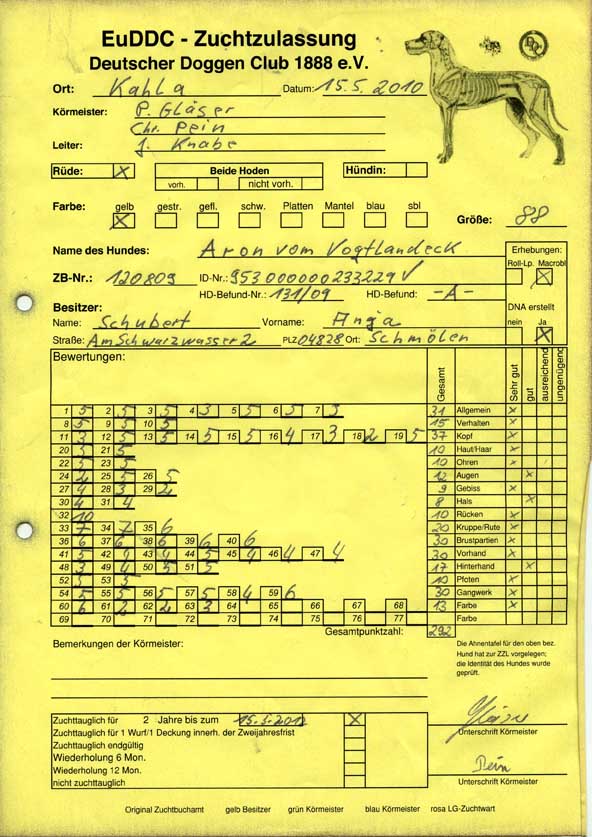 EuDDC - Zuchtzulassung
Deutscher Doggen Club 1888 e.V.
DDC
Ort: Kahla Datum: 15.5.2010
Körmeister: P. Gläser
Chr. Pein
Leiter: J. Knabe
Rüde: X Beide Hoden Hündin:
vorh. nicht vorh.
Farbe: gelb gestr. gefl. schw. Platten Mantel blau sbl
X Größe: 88
Name des Hundes: Aron vom Vogtlandeck
Erhebungen:
Roll-Lp. Macrobl
X
ZB-Nr.: 120809 ID-Nr.: 953000000233229 V
HD-Befund-Nr.: 131/09 HD-Befund: -A-
DNA erstellt
nein Ja
X
Besitzer:
Name: Schubert Vorname: Anja
Straße: Am Schwarzwasser 2 PLZ 04828 Ort: Schmölen
Bewertungen: Gesamt Sehr gut gut ausreichend ungenügend
1 5 2 5 3 5 4 3 5 5 6 5 7 3 31 Allgemein X
8 5 9 5 10 5 15 Verhalten X
11 3 12 5 13 5 14 5 15 5 16 4 17 3 18 2 19 5 37 Kopf X
20 5 21 5 10 Haut/Haar X
22 5 23 5 10 Ohren X
24 2 25 5 26 5 12 Augen X
27 4 28 3 29 2 9 Gebiss X
30 4 31 4 8 Hals X
32 10 10 Rücken X
33 7 34 7 35 6 20 Kruppe/Rute X
36 6 37 6 38 6 39 6 40 6 30 Brustpartien X
41 5 42 4 43 4 44 5 45 4 46 4 47 4 30 Vorhand X
48 3 49 4 50 5 51 5 17 Hinterhand X
52 5 53 5 10 Pfoten X
54 5 55 5 56 5 57 5 58 4 59 6 30 Gangwerk X
60 6 61 2 62 2 63 3 64 65 66 67 68 13 Farbe X
69 70 71 72 73 74 75 76 77 Farbe
Gesamtpunktzahl: 292
Bemerkungen der Körmeister:
Die Ahnentafel für den oben bez.
Hund hat zur ZZL vorgelegen;
die Identität des Hundes wurde
geprüft.
Zuchttauglich für 2 Jahre bis zum 15.5.2012 X
Zuchttauglich für 1 Wurf/1 Deckung innerh. der Zweijahresfrist
Zuchttauglich endgültig
Wiederholung 6 Mon.
Wiederholung 12 Mon.
nicht zuchttauglich
Gläser
Unterschrift Körmeister
Pein
Unterschrift Körmeister
Original Zuchtbuchamt gelb Besitzer grün Körmeister blau Körmeister rosa LG-Zuchtwart